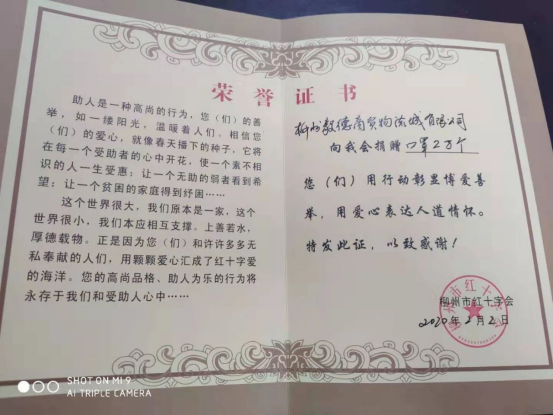 荣誉证书
助人是一种高尚的行为，您（们）的善
举，如一缕阳光，温暖着人们。相信您
（们）的爱心，就像春天播下的种子，它将
在每一个受助者的心中开花，使一个素不相
识的人一生受惠；让一个无助的弱者看到希
望；让一个贫困的家庭得到纾困……
这个世界很大，我们原本是一家，这个
世界很小，我们本应相互支撑。上善若水，
厚德载物。正是因为您（们）和许许多多无
私奉献的人们，用颗颗爱心汇成了红十字爱
的海洋。您的高尚品格、助人为乐的行为将
永存于我们和受助人心中……
柳州毅德商贸物流城有限公司
向我会捐赠口罩2万个
您（们）用行动彰显博爱善
举，用爱心表达人道情怀。
特发此证，以致感谢！
柳州市红十字会
2020年2月2日
柳州市红十字会
SHOT ON MI 9
AI TRIPLE CAMERA